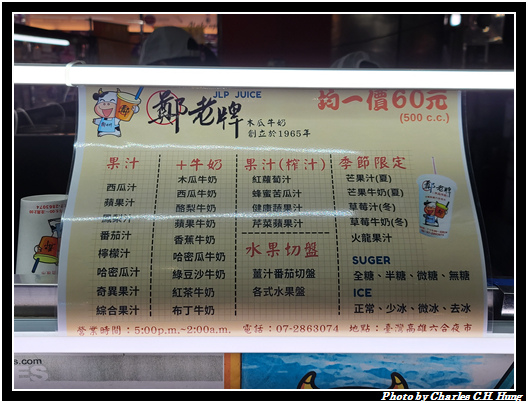 JLP JUICE
鄭老牌
木瓜牛奶
創立於1965年
均一價60元
(500 c.c.)
果汁
西瓜汁
蘋果汁
鳳梨汁
番茄汁
檸檬汁
哈密瓜汁
奇異果汁
綜合果汁
+牛奶
木瓜牛奶
西瓜牛奶
酪梨牛奶
蘋果牛奶
香蕉牛奶
哈密瓜牛奶
綠豆沙牛奶
紅茶牛奶
布丁牛奶
果汁(榨汁)
紅蘿蔔汁
蜂蜜苦瓜汁
健康蔬果汁
芹菜蘋果汁
水果切盤
薑汁番茄切盤
各式水果盤
季節限定
芒果汁(夏)
芒果牛奶(夏)
草莓汁(冬)
草莓牛奶(冬)
火龍果汁
SUGER
全糖、半糖、微糖、無糖
ICE
正常、少冰、微冰、去冰
營業時間：5:00p.m.~2:00a.m. 電話：07-2863074 地點：臺灣高雄六合夜市
s.com
ES
Photo by Charles C.H. Hung